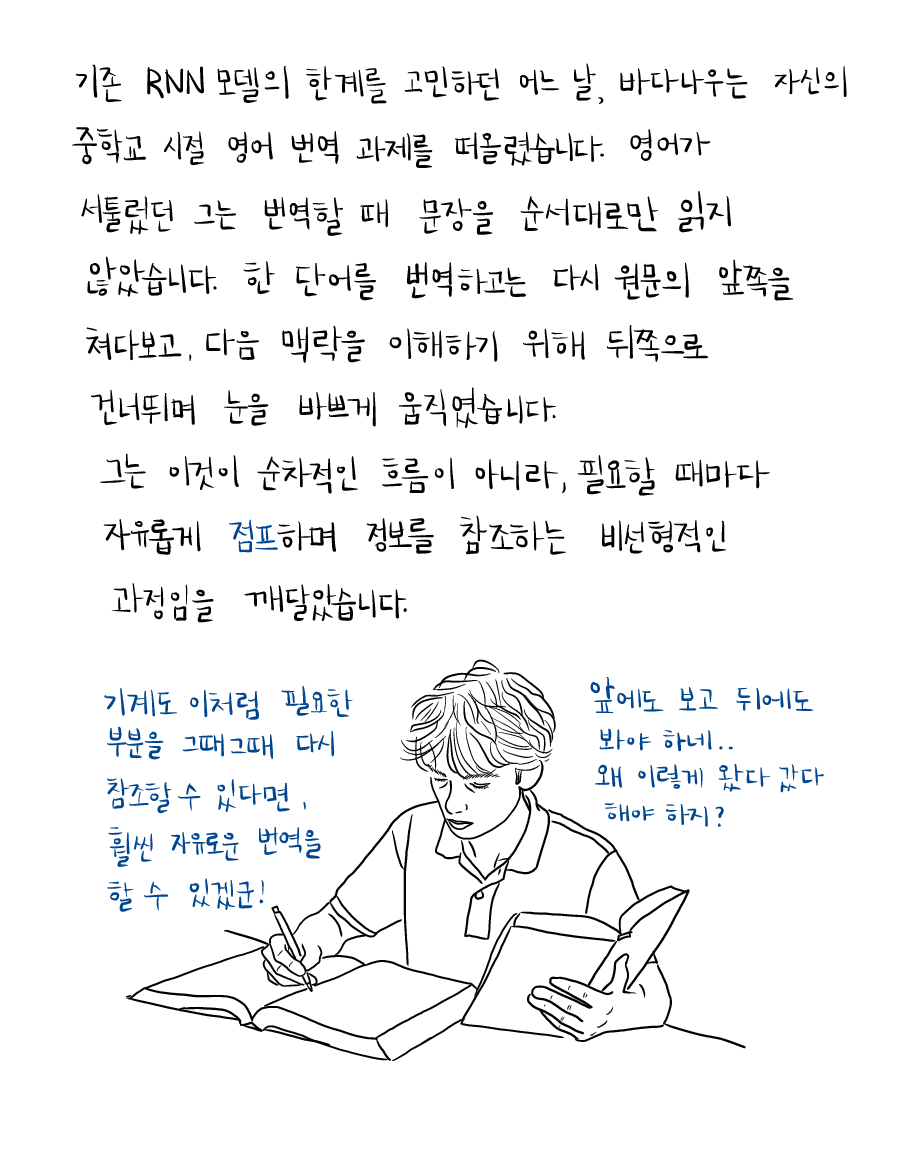 기존 RNN 모델의 한계를 고민하던 어느 날, 바다나우는 자신의
중학교 시절 영어 번역 과제를 떠올렸습니다. 영어가
서툴렀던 그는 번역할 때 문장을 순서대로만 읽지
않았습니다. 한 단어를 번역하고는 다시 원문의 앞쪽을
쳐다보고, 다음 맥락을 이해하기 위해 뒤쪽으로
건너뛰며 눈을 바쁘게 움직였습니다.
그는 이것이 순차적인 흐름이 아니라, 필요할 때마다
자유롭게 점프하며 정보를 참조하는 비선형적인
과정임을 깨달았습니다.
기계도 이처럼 필요한
부분을 그때그때 다시
참조할 수 있다면,
훨씬 자유로운 번역을
할 수 있겠군!
앞에도 보고 뒤에도
봐야 하네..
왜 이렇게 왔다 갔다
해야 하지?